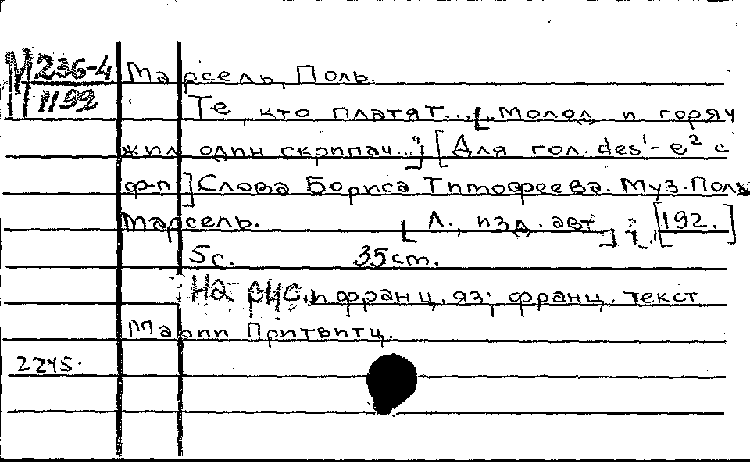 М 236-4
1192
Марсель, Поль.
Те, кто платят... [„Молод и горяч
жил один скрипач..."] [Для гол. des¹-e² с
ф-п] Слова Бориса Тимофеева. Муз. Поль
Марсель. [Л., изд. авт.], [192.]
5с. 35cm.
На рус. и франц. яз; франц. текст
Марии Притвитц.
2245.